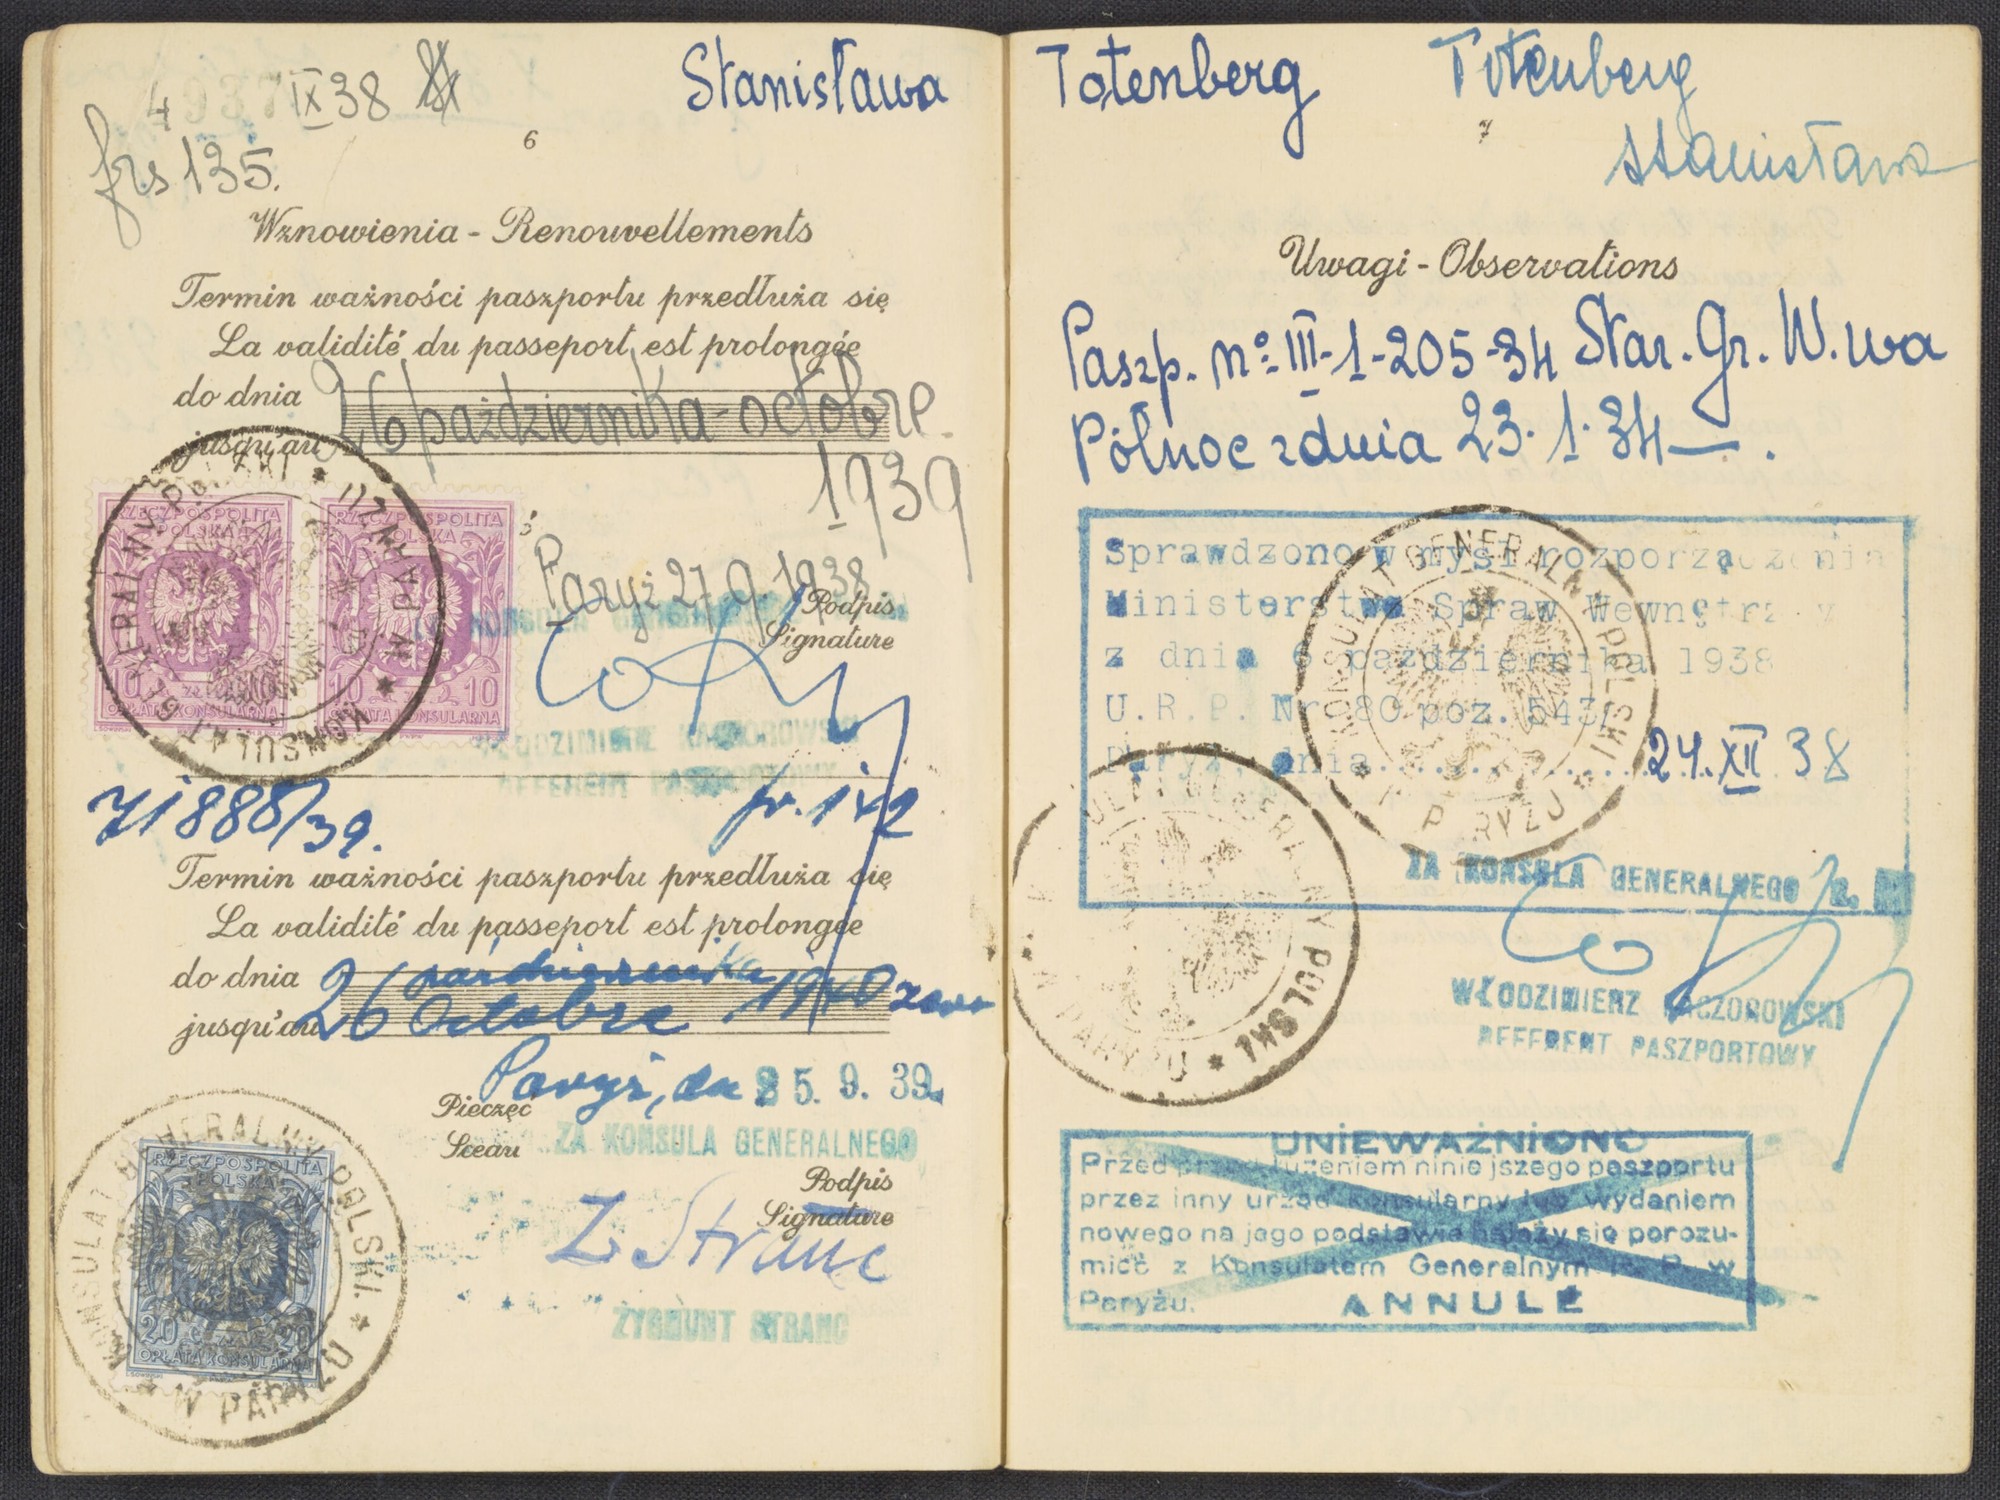 4 IX 38
Stanisława
frs 135.
6
Wznowienia - Renouvellements
Termin ważności paszportu przedłuża się
La validité du passeport est prolongée
do dnia
jusqu'au
26 października - octobre
1939
RZECZPOSPOLITA
POLSKA
10 zł 10
OPŁATA KONSULARNA
RZECZPOSPOLITA
POLSKA
10 zł 10
OPŁATA KONSULARNA
KONSULAT GENERALNY POLSKI * W PARYŻU *
Paryż 27 9. 1938
Podpis
Signature
WŁODZIMIERZ KACZOROWSKI
REFERENT PASZPORTOWY
71888/39.
fr. 142
Termin ważności paszportu przedłuża się
La validité du passeport est prolongée
do dnia
jusqu'au
26 października 1940
Octobre
Paryż, dn 25. 9. 39.
Pieczęć
Sceau
ZA KONSULA GENERALNEGO
Podpis
Signature
Z Stranc
ZYGMUNT STRANC
KONSULAT GENERALNY POLSKI * W PARYŻU *
RZECZPOSPOLITA
POLSKA
20 zł 20
OPŁATA KONSULARNA
Totenberg Totenberg
7
Stanisława
Uwagi - Observations
Paszp. nº III-1-205-34 Star. Gr. W.wa
Północ z dnia 23. 1. 34 — .
Sprawdzono w myśl rozporządzenia
Ministerstwa Spraw Wewnętrz
z dnia 6 października 1938
U.R.P. Nr 80 poz. 543
Paryż, dnia 24. XII 38
KONSULAT GENERALNY POLSKI * W PARYŻU *
ZA KONSULA GENERALNEGO
WŁODZIMIERZ KACZOROWSKI
REFERENT PASZPORTOWY
KONSULAT GENERALNY POLSKI * W PARYŻU *
UNIEWAŻNIONO
Przed przedłużeniem niniejszego paszportu
przez inny urząd konsularny lub wydaniem
nowego na jego podstawie należy się porozu-
mieć z Konsulatem Generalnym R. P. w
Paryżu.
ANNULÉ